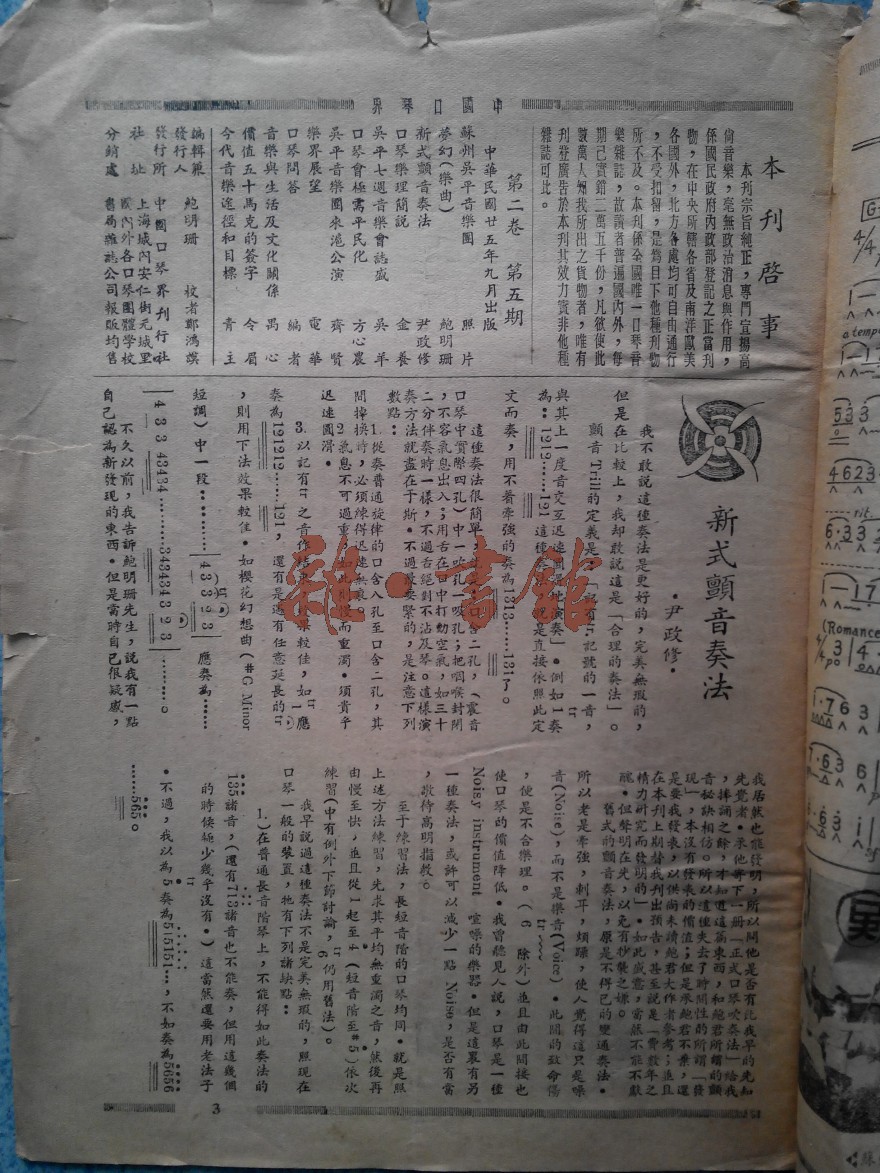 中國口琴界
本刊啓事
本刊宗旨純正，專門宣揚高
尙音樂，毫無政治消息與作用，
係國民政府內政部登記之正當刊
物，在中央所轄各省及南洋歐美
各國外，北方各處均可自由通行
，不受扣留，是爲目下他種刊物
所不及。本刊係全國唯一口琴音
樂雜誌，故讀者普遍國內外，每
期已實銷二萬五千份，凡欲使此
數萬人知我所出之貨物者，唯有
利登廣告於本刊其效力實非他種
雜誌可比。
第二卷 第五期
中華民國廿五年九月出版
蘇州吳平音樂團 照片
夢幻(樂曲) 鮑明珊
新式顫音奏法 尹政修
口琴樂理簡說 金養
吳平七週音樂會誌盛 吳羊
口琴會極需平民化 方心農
吳平音樂團來滬公演 齊賢
樂界展望 電華
口琴問答 編者
音樂與生活及文化關係 禺心
價值五十馬克的簽字 今眉
今代音樂途徑和目標 青主
編輯兼發行人 鮑明珊 校者鄭鴻謨
發行所 中國口琴界刊行社
社址 上海城內安仁街元城里
分銷處 國內外各口琴團體學校
書局雜誌公司報販均售
新式顫音奏法
·尹政修·
我不敢說這種奏法是更好的，完美無瑕的，
但是在比較上，我却敢說這是「合理的奏法」。
顫音 Trill 的定義是：「記有 tr 記號的一音，
與其上一度音交互迅速圓滑地演奏」。例如 1 奏
為：1212……121 這種奏法就是直接依照此定
文而奏，用不着牽強的奏為1313……131了。
這種奏法很簡單，
口琴中實際四孔)中一吹孔一吸孔；把咽喉封閉
，不容氣息出入；用舌在口中打動空氣，如三十
二分伴奏時一樣，不過舌絕對不沾及琴。這樣演
奏方法就盡在于斯。不過最要緊的，是注意下列
數點：
1.從奏普通旋律的口含八孔至口含二孔，其
間掉換時，必須練得迅速無痕。
2.氣息不可過重，
迅速圓滑。
3.以記有 tr 之音作結束，效果較佳，如 1 應
奏為121212……121，還有是遇有任意延長的 tr
，則用下法效果較佳。如櫻花幻想曲(#G Minor
短調)中一段：……4 3 3 2 3 應奏為……
4 3 3 43434………343434 3 2 3 ……。
不久以前，我告訴鮑明珊先生，說我有一點
自己認為新發現的東西。但是當時自己很疑慮，
我居然也能發明，所以問他是否有比我早的先知
先覺者。承他寄下一册「正式口琴吹奏法」給我
，捧誦之餘，才知道這篇東西，和鮑君所謂的顫
音秘訣相仿。所以這種失去了時間性的所謂「發
現」，本沒有發表的價值；但是承鮑君不棄，還
是要我發表，以供尚未讀鮑君大作者參考；並且
在本刊上期替我刊出預告，甚至說是「費數年之
精力研究而發明的」。如此盛意，當然不能不獻
醜。但聲明在先，以免有抄襲之嫌。
舊式的顫音奏法，原是不得已的變通奏法。
所以老是牽強，刺耳，煩躁，使人覺得這只是噪
音(Noice)，而不是樂音(Voice)。此間的致命傷
，便是不合樂理。(6 除外)並且由此間接也
使口琴的價值降低。我曾聽見人說，口琴是一種
Noisy instrument 喧噪的樂器。但是這裏有另
一種奏法，或許可以減少一點 Noise，是否有當
，敬待高明指教。
至于練習法，長短音階的口琴均同。就是照
上述方法練習，先求其平均無重濁之音，然後再
由慢至快，並且從 1 起至 4(短音階至#5)依次
練習(中有例外下節討論，6 仍用舊法)。
我早說過這種奏法不是完美無瑕的，照現在
口琴一般的裝置，牠有下列諸缺點：
1.)在普通長音階琴上，不能得如此奏法的
135諸音，(還有713諸音也不能奏，但用這幾個
的時候極少幾乎沒有。)這當然還要用老法子
。不過，我以為 5 奏為515151…，不如奏為5656
……565。
3